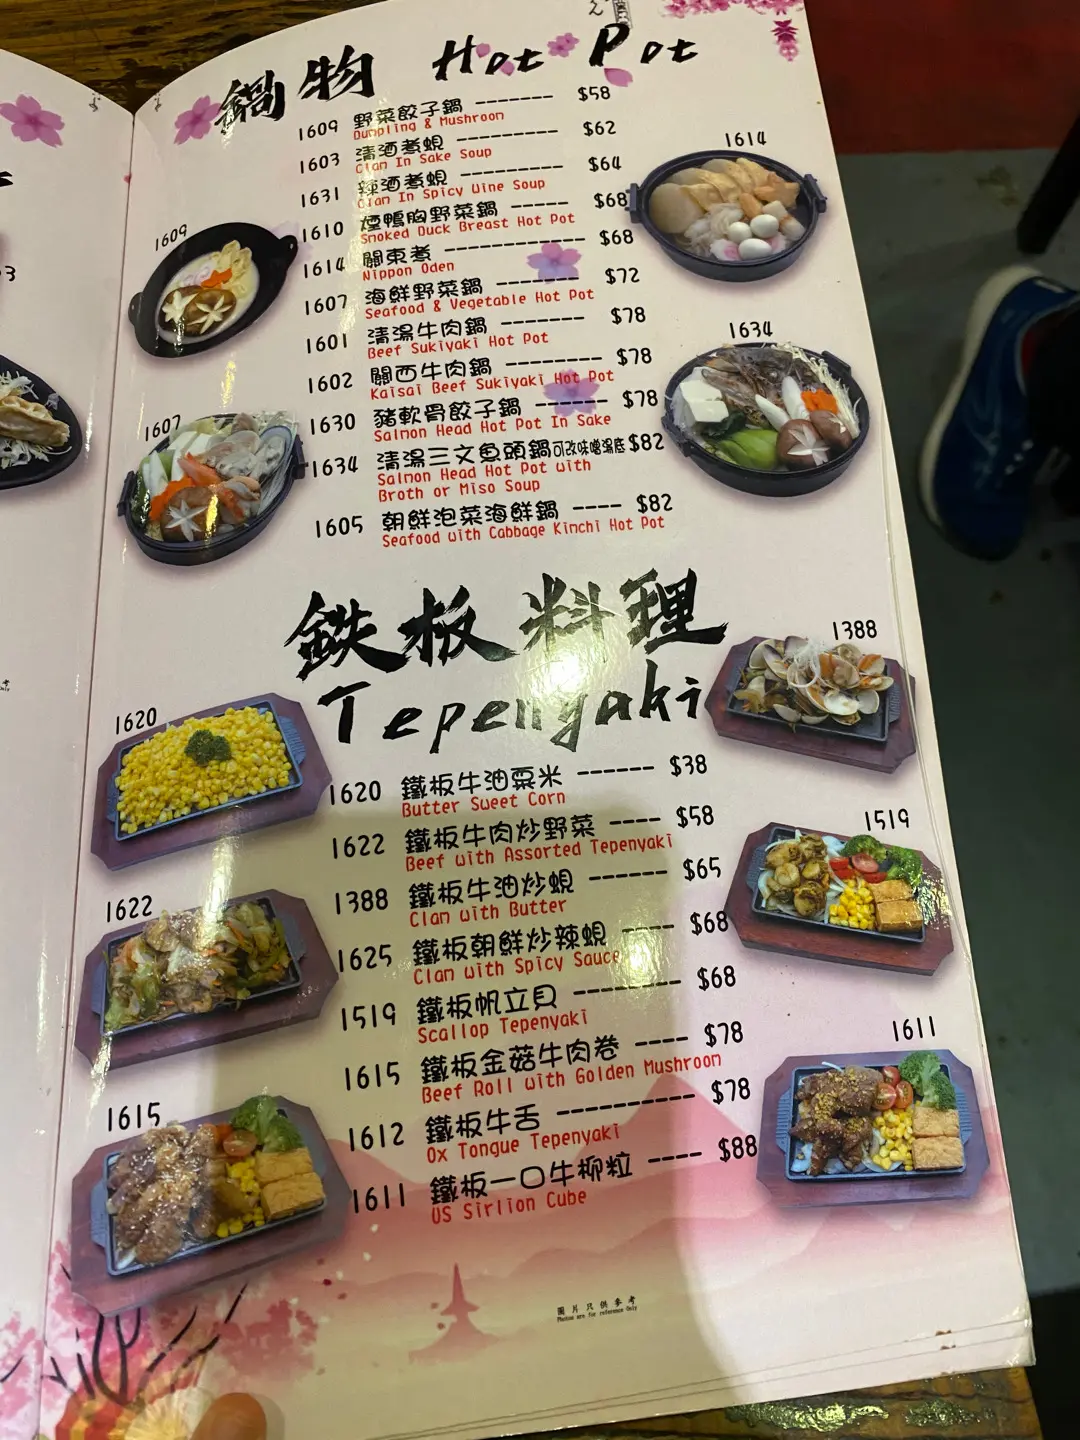 鍋物 Hot Pot
1609 野菜餃子鍋 ------- $58
Dumpling & Mushroom
1603 清酒煮蜆 --------- $62
Clan In Sake Soup
1631 辣酒煮蜆 --------- $64
Clan In Spicy Wine Soup
1610 煙鴨胸野菜鍋 ----- $68
Smoked Duck Breast Hot Pot
1614 關東煮 ------------ $68
Nippon Oden
1607 海鮮野菜鍋 ------- $72
Seafood & Vegetable Hot Pot
1601 清湯牛肉鍋 ------- $78
Beef Sukiyaki Hot Pot
1602 關西牛肉鍋 -------- $78
Kaisai Beef Sukiyaki Hot Pot
1630 豬軟骨餃子鍋 ------ $78
Salmon Head Hot Pot In Sake
1634 清湯三文魚頭鍋可改味噌湯底 $82
Salmon Head Hot Pot with
Broth or Miso Soup
1605 朝鮮泡菜海鮮鍋 ---- $82
Seafood with Cabbage Kinchi Hot Pot
1609
1607
1614
1634
鉄板料理
Tepenyaki
1620 鐵板牛油粟米 ------ $38
Butter Sweet Corn
1622 鐵板牛肉炒野菜 ---- $58
Beef with Assorted Tepenyaki
1388 鐵板牛油炒蜆 ------ $65
Clan with Butter
1625 鐵板朝鮮炒辣蜆 ---- $68
Clan with Spicy Sauce
1519 鐵板帆立貝 -------- $68
Scallop Tepenyaki
1615 鐵板金菇牛肉卷 ---- $78
Beef Roll with Golden Mushroom
1612 鐵板牛舌 ---------- $78
Ox Tongue Tepenyaki
1611 鐵板一口牛柳粒 ---- $88
US Sirlion Cube
1620
1622
1615
1388
1519
1611
圖片只供參考
Photos are for reference Only